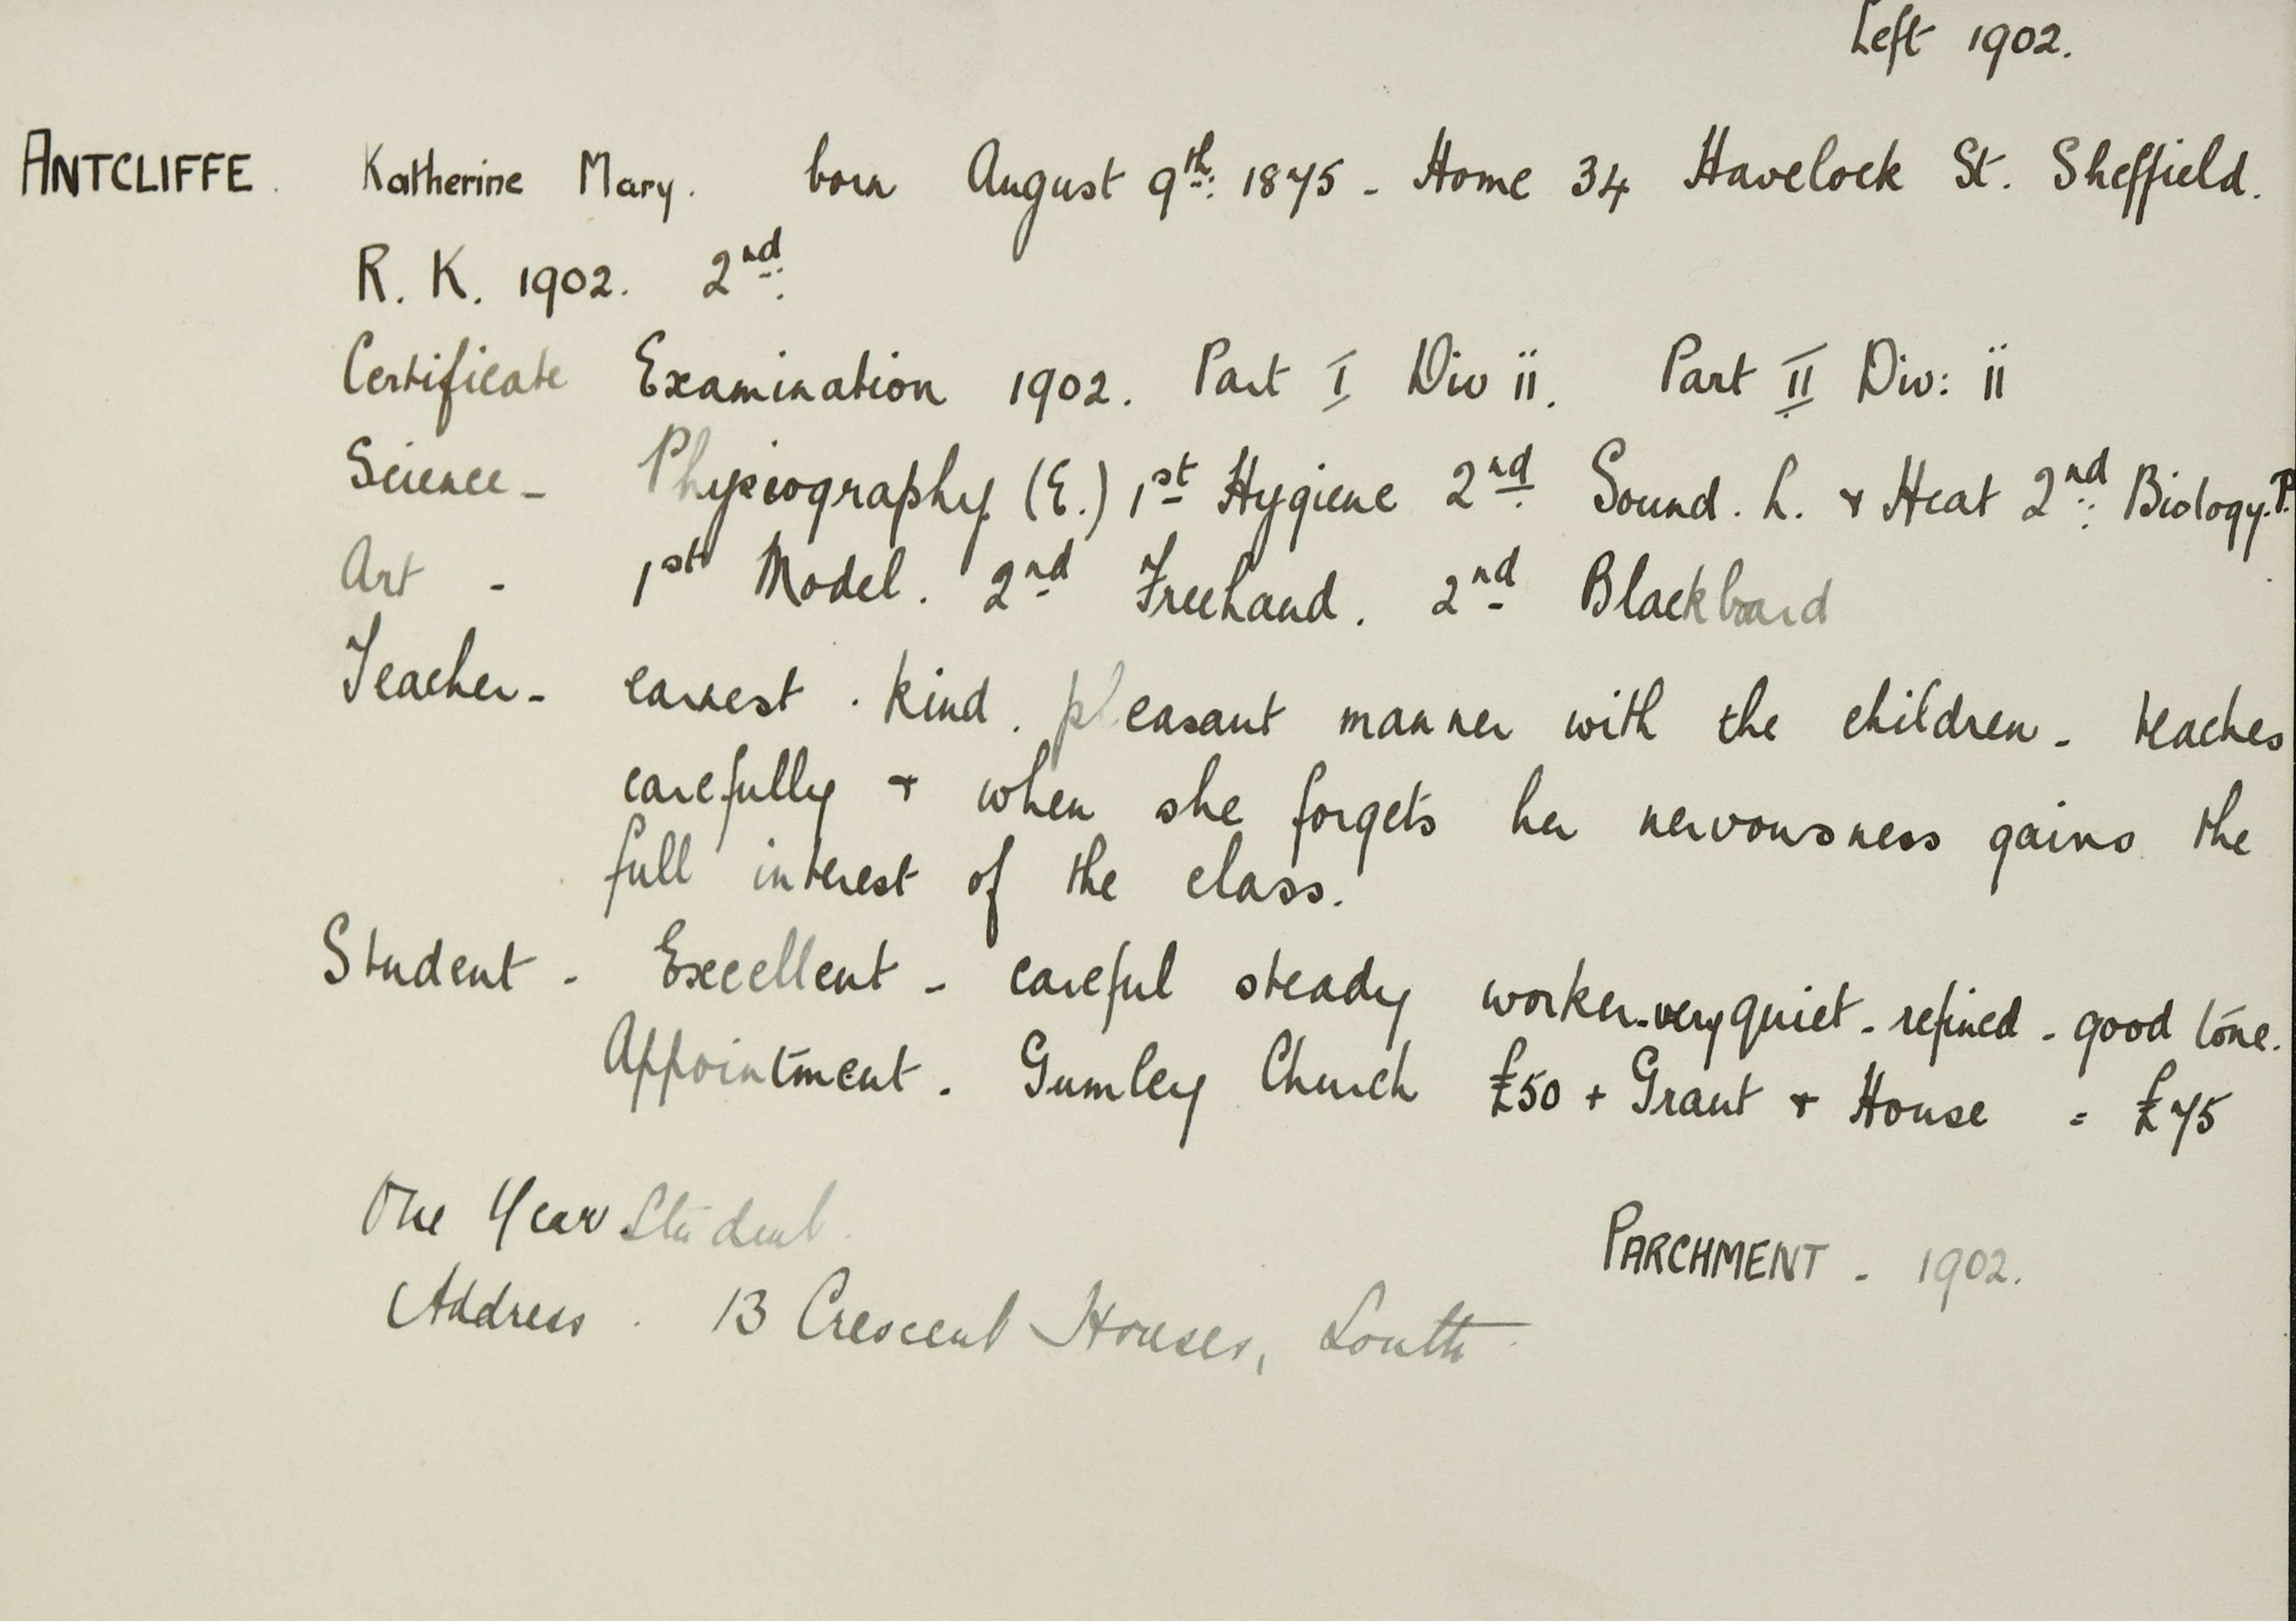 Left 1902.
ANTCLIFFE. Katherine Mary. born August 9th: 1875 - Home 34 Havelock St. Sheffield.
R. K. 1902. 2nd:
Certificate Examination 1902. Part I Div ii. Part II Div: ii
Science - Physiography (E.) 1st Hygiene 2nd Sound. L. & Heat 2nd: Biology. P.
Art - 1st Model. 2nd Freehand. 2nd Blackboard
Teacher - earnest. kind. pleasant manner with the children - teaches
carefully & when she forgets her nervousness gains the
full interest of the class.
Student - Excellent - careful steady worker - very quiet - refined - good tone.
Appointment. Gumley Church £50 + Grant & House = £75
One Year Student.
PARCHMENT - 1902.
Address. 13 Crescent Houses, Louth.